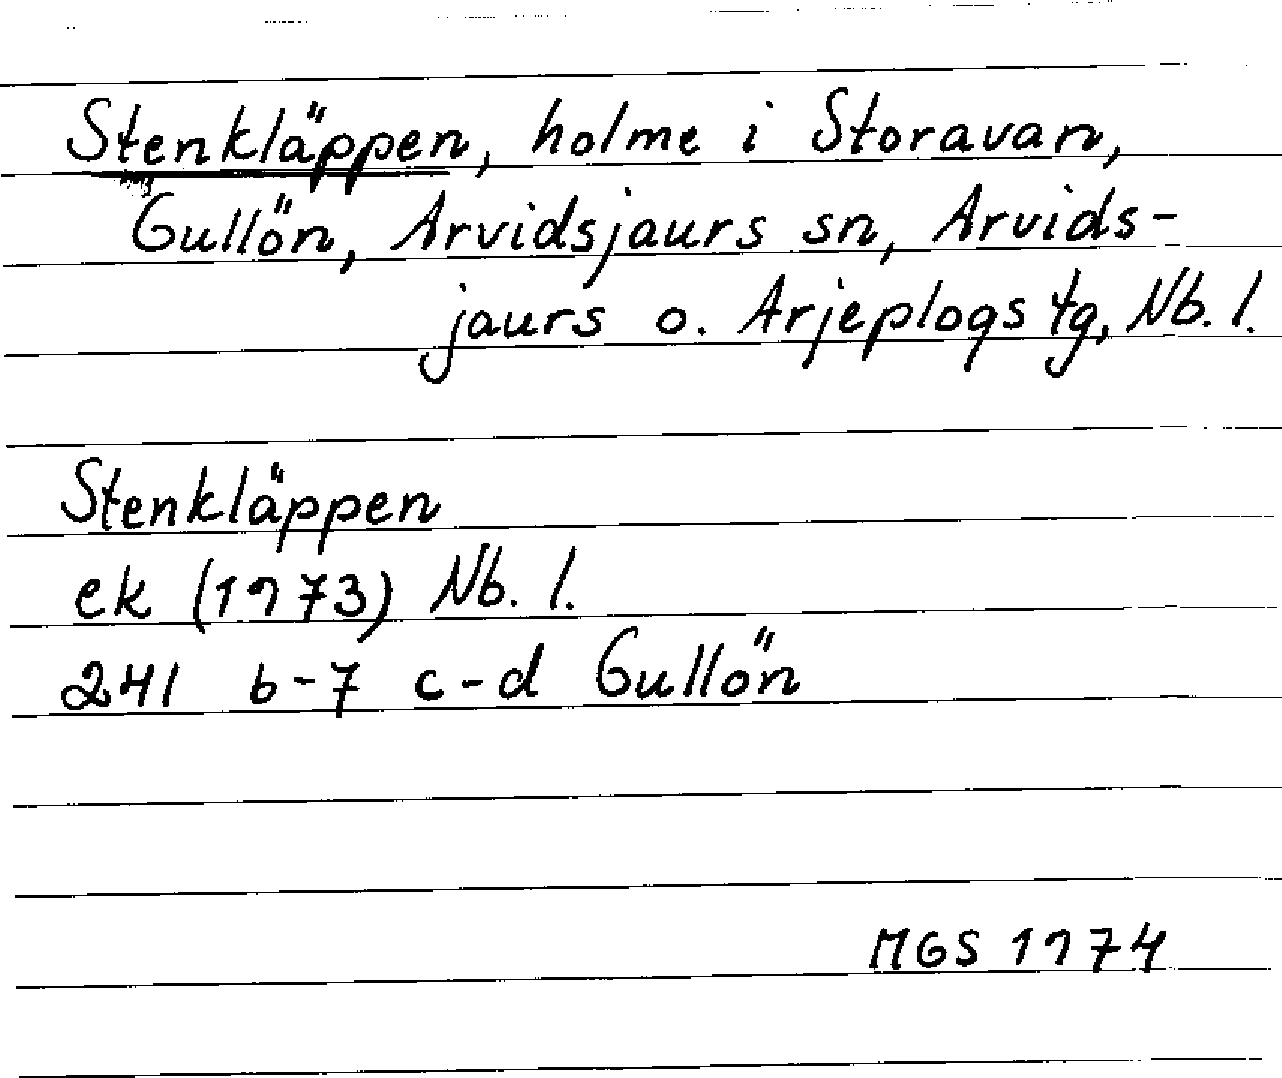 Stenkläppen, holme i Storavan,
Gullön, Arvidsjaurs sn, Arvids-
jaurs o. Arjeplogs tg, Nb. l.
Stenkläppen
ek (1973) Nb. l.
241 b-7 c-d Gullön
MGS 1974